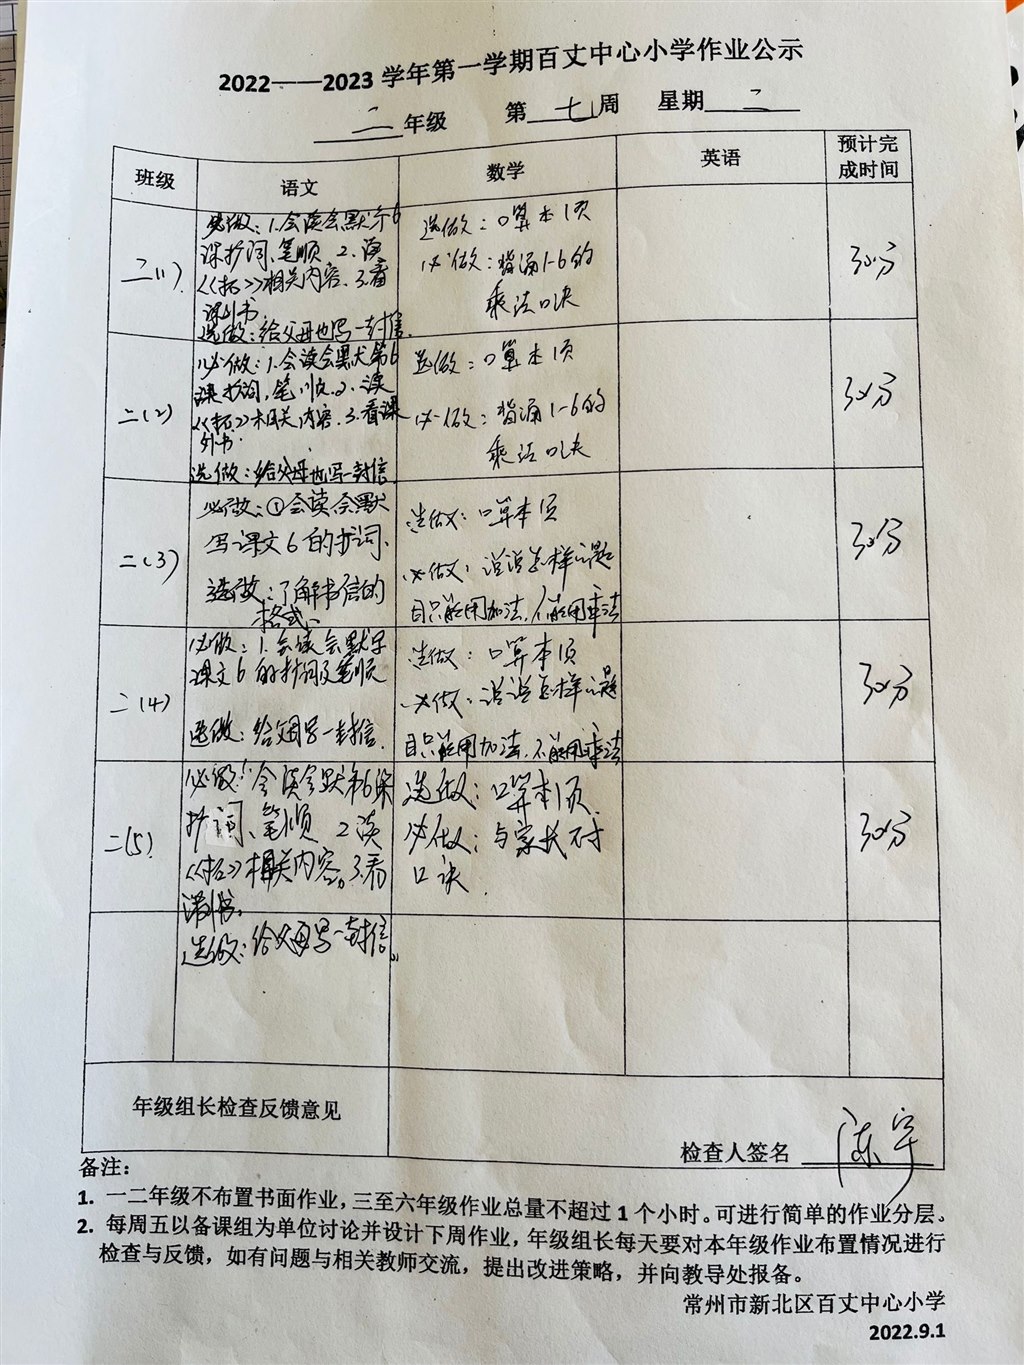 2022——2023 学年第一学期百丈中心小学作业公示
二年级 第七周 星期二
班级 语文 数学 英语 预计完成时间
二(1)
必做：1.会读会默写6
课抄词、笔顺 2.读
《拓》相关内容.3.看
课外书
选做：给父母也写一封信.
选做：口算本1页
必做：背诵1-6的
乘法口诀
30分
二(2)
必做：1.会读会默第6
课抄词,笔顺.2.读
《拓》相关内容.3.看课
外书.
选做：给父母也写一封信
选做：口算本1页
必做：背诵1-6的
乘法口诀
30分
二(3)
必做：①会读会默
写课文6的抄词.
选做：了解书信的
格式、
选做：口算本1页
必做：说说怎样的题
目只能用加法,不能用乘法
30分
二(4)
必做：1.会读会默写
课文6的抄词及笔顺
选做：给父母写一封信.
选做：口算本1页
必做：说说怎样的题
目只能用加法,不能用乘法
30分
二(5)
必做：会读会默第6课
抄词、笔顺 2读
《拓》相关内容。3.看
课外书。
选做：给父母写一封信。
选做：口算本1页.
必做：与家长对
口诀.
30分
年级组长检查反馈意见
检查人签名 陈宇
备注：
1. 一二年级不布置书面作业，三至六年级作业总量不超过 1 个小时。可进行简单的作业分层。
2. 每周五以备课组为单位讨论并设计下周作业，年级组长每天要对本年级作业布置情况进行
检查与反馈，如有问题与相关教师交流，提出改进策略，并向教导处报备。
常州市新北区百丈中心小学
2022.9.1